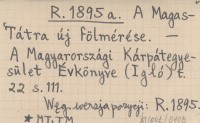 R.1895 a. A Magas-
Tátra új fölmérése. —
A Magyarországi Kárpátegye-
sület Évkönyve (Igló) t.
22 s. 111.
Węg. wersja pozycji: R.1895.
* MT, TM